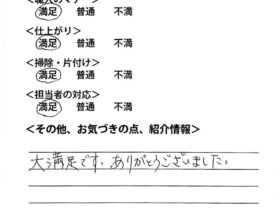 満足 普通 不満
<仕上がり>
満足 普通 不満
<掃除・片付け>
満足 普通 不満
<担当者の対応>
満足 普通 不満
<その他、お気づきの点、紹介情報>
大満足です。ありがとうございました。